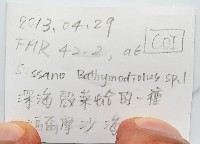 2013.04.29
FHR 42-2, at COI
S. ssano Bathymodiolus sp. 1
深海殻菜蛤的一種
福爾摩沙海